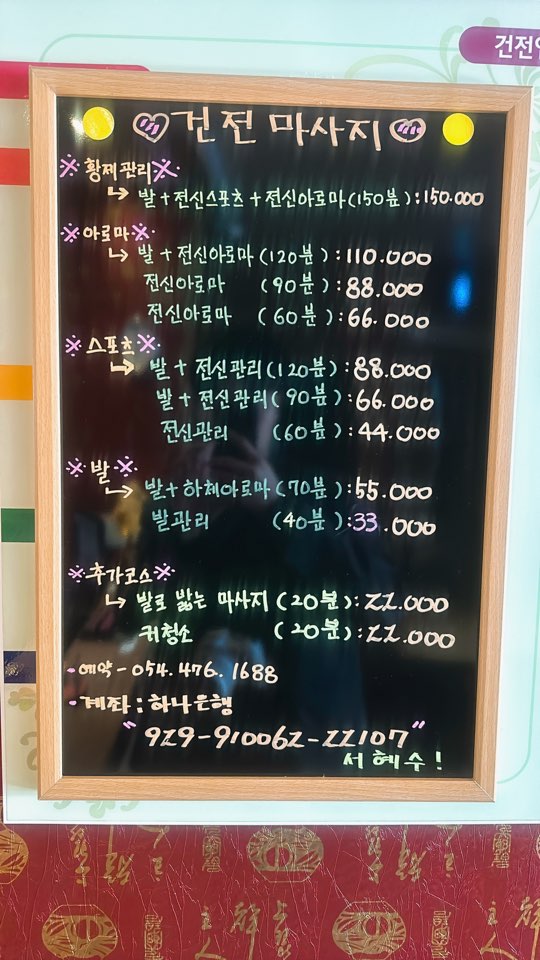 건전
건전 마사지
※황제관리※
↳ 발+전신스포츠+전신아로마(150분):150.000
※아로마※
↳ 발+전신아로마(120분):110.000
전신아로마 (90분):88.000
전신아로마 (60분):66.000
※스포츠※
↳ 발+전신관리(120분):88.000
발+전신관리(90분):66.000
전신관리 (60분):44.000
※발※
↳ 발+하체아로마(70분):55.000
발관리 (40분):33.000
※추가코스※
↳ 발로 밟는 마사지(20분):22.000
귀청소 (20분):22.000
-예약-054.476.1688
-계좌:하나은행
"929-910062-22107"
서혜수!